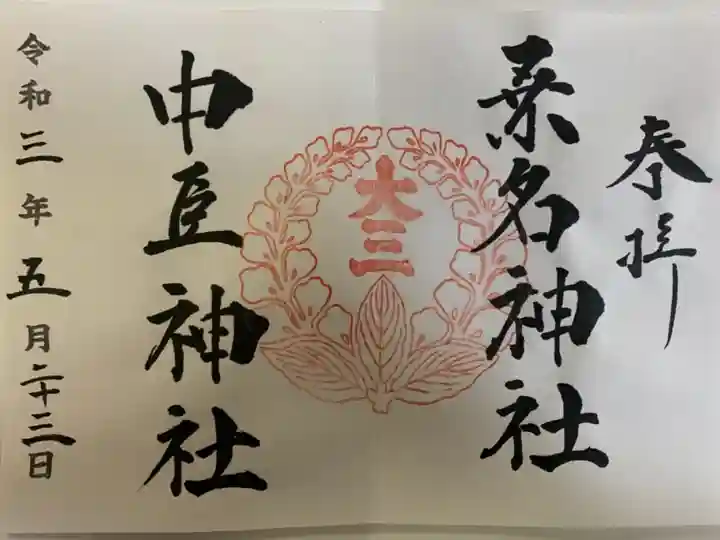 奉拝
桒名神社
大三
中臣神社
令和三年五月二十三日